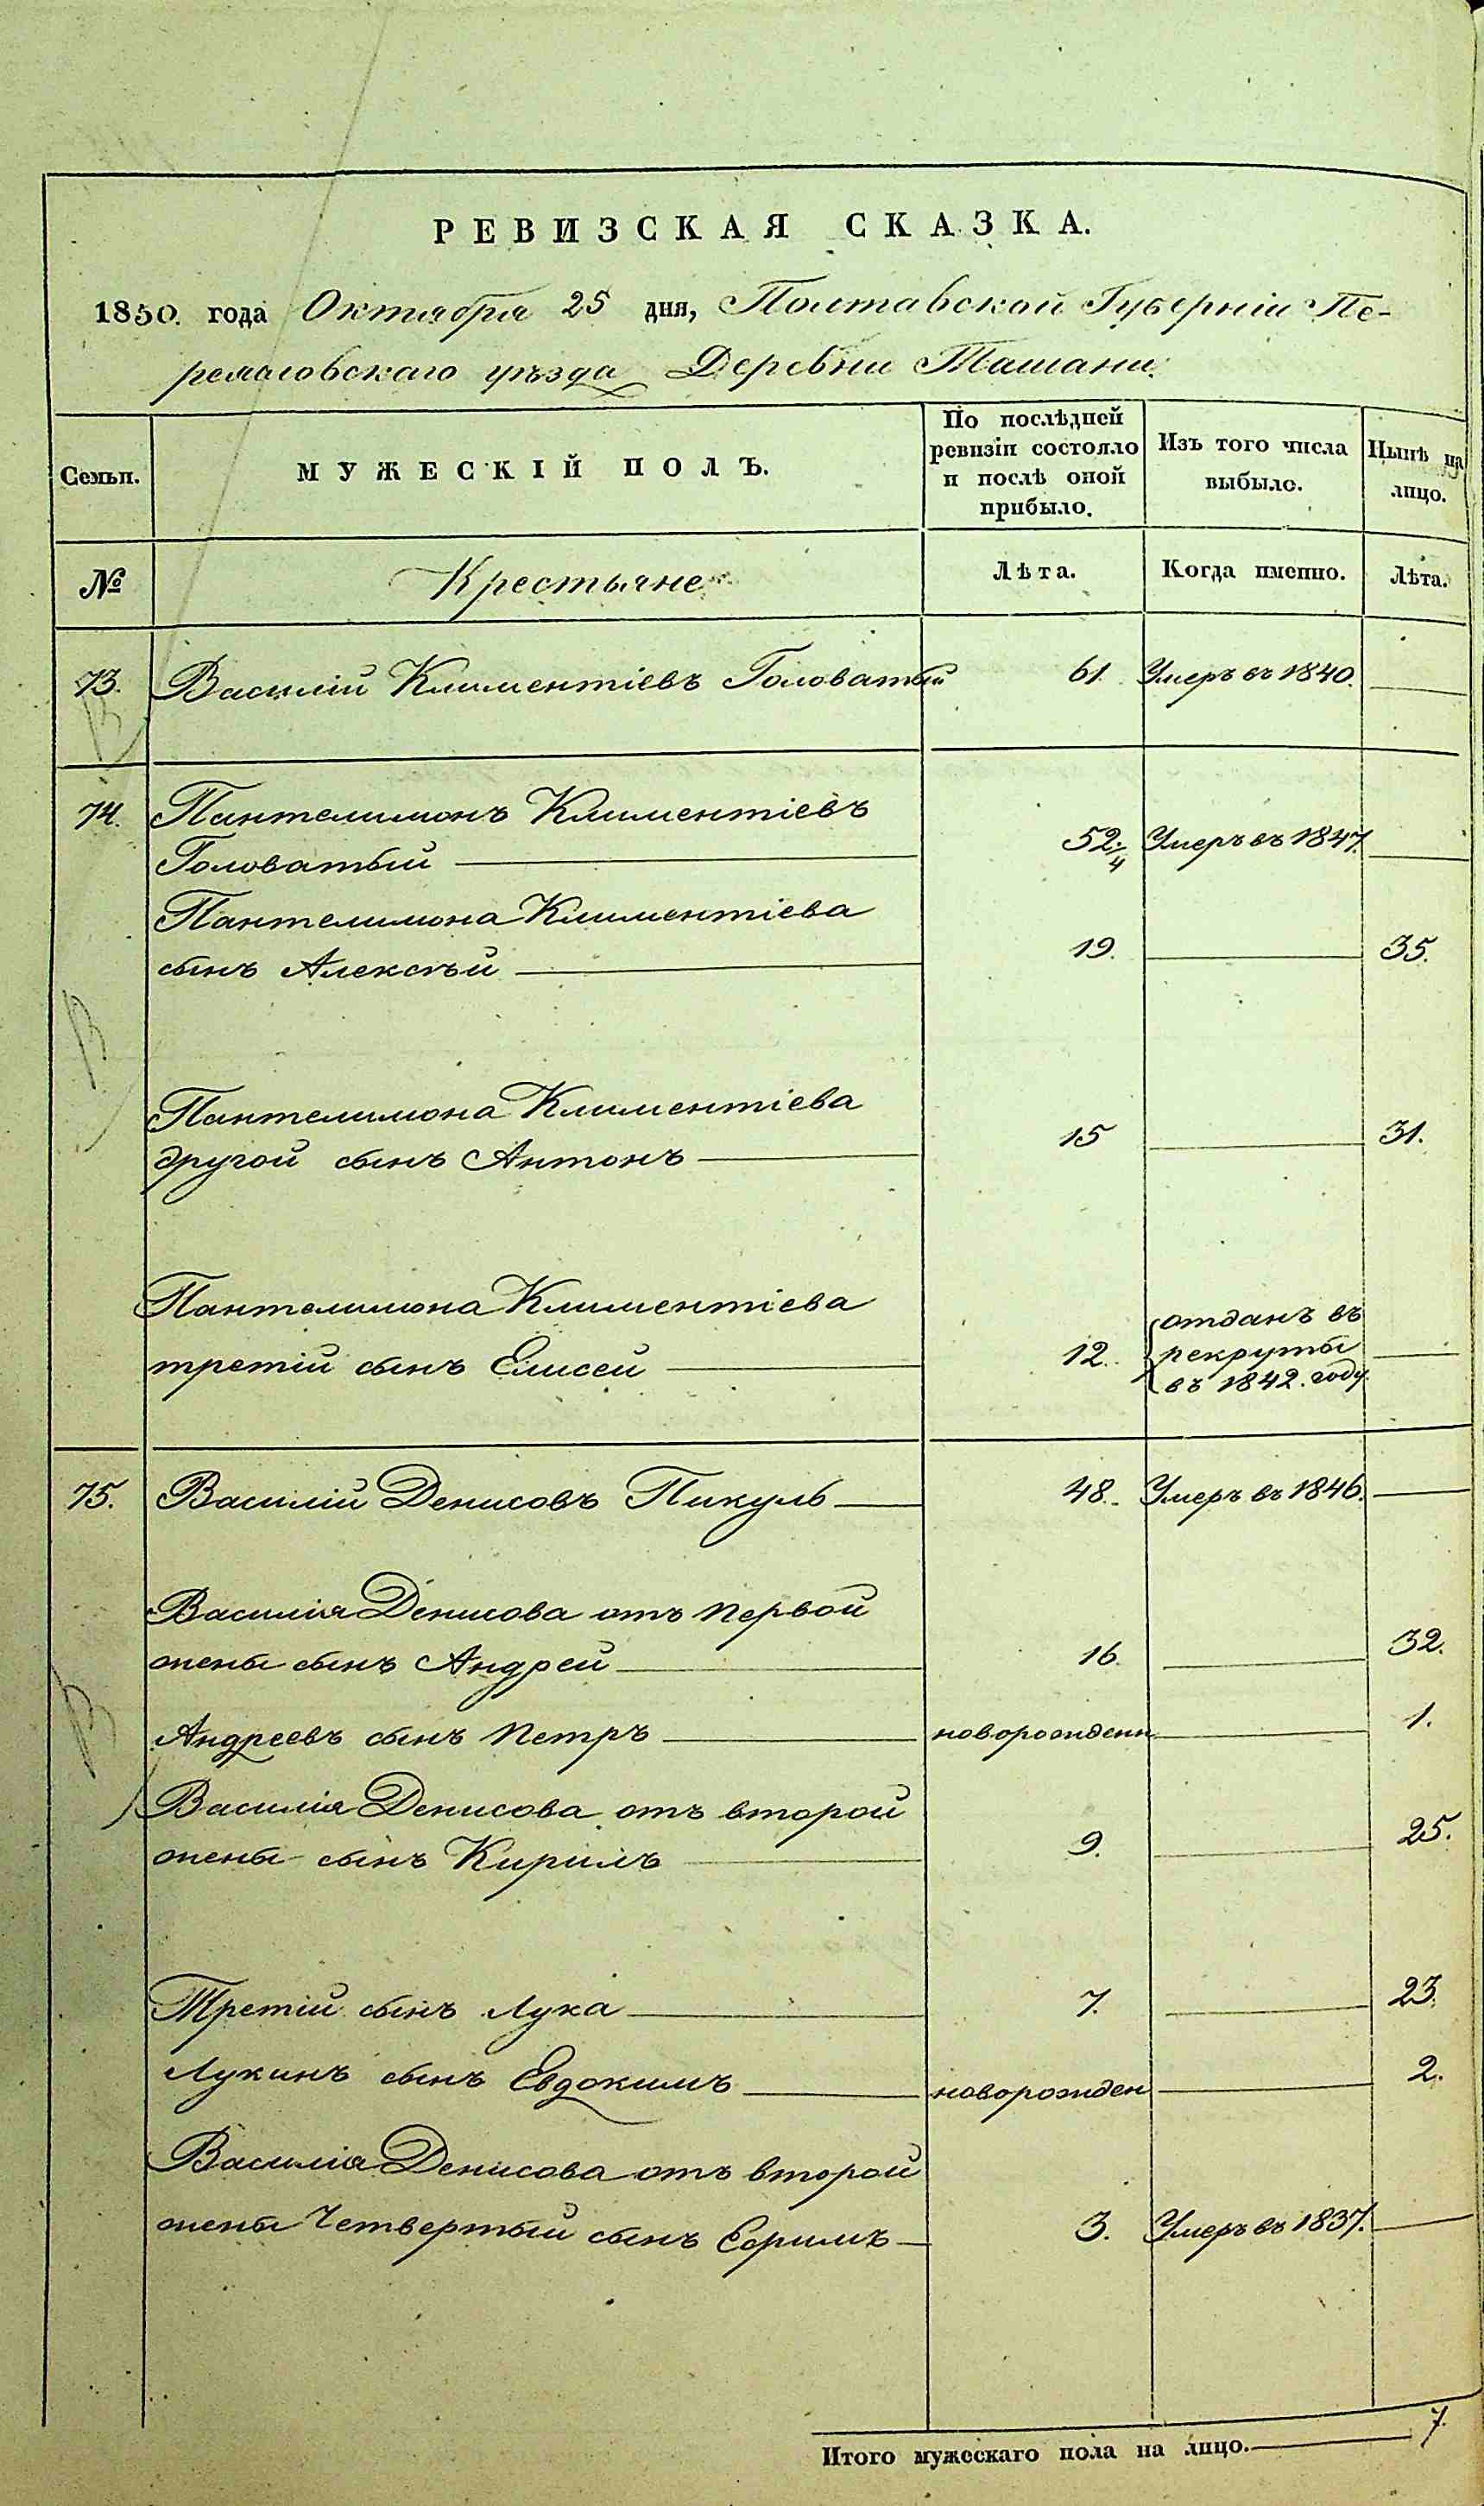 РЕВИЗСКАЯ СКАЗКА.
1850. года Октября 25 дня, Полтавской Губерніи Пе-
реяславскаго уѣзда Деревни Ташани.
Семьи. МУЖЕСКІЙ ПОЛЪ. По послѣдней ревизіи состояло и послѣ оной прибыло. Изъ того числа выбыло. Нынѣ на лицо.
№ Крестьяне Лѣта. Когда именно. Лѣта.
73. Василій Климентіевъ Головатый 61. Умеръ въ 1840.
74. Пантелимонъ Климентіевъ
Головатый 52./4 Умеръ въ 1847.
Пантелимона Климентіева
сынъ Алексѣй 19. 35.
Пантелимона Климентіева
другой сынъ Антонъ 15 31.
Пантелимона Климентіева
третій сынъ Елисей 12. отданъ въ
рекруты
въ 1842. году
75. Василій Денисовъ Пикуль 48. Умеръ въ 1846.
Василія Денисова отъ первой
жены сынъ Андрей 16. 32.
Андреевъ сынъ Петръ новорожден 1.
Василія Денисова отъ второй
жены сынъ Кирилъ 9. 25.
Третій сынъ Лука 7. 23.
Лукинъ сынъ Евдокимъ новорожден 2.
Василія Денисова отъ второй
жены Четвертый сынъ Еѳримъ 3. Умеръ въ 1837.
Итого мужескаго пола на лицо. 7.